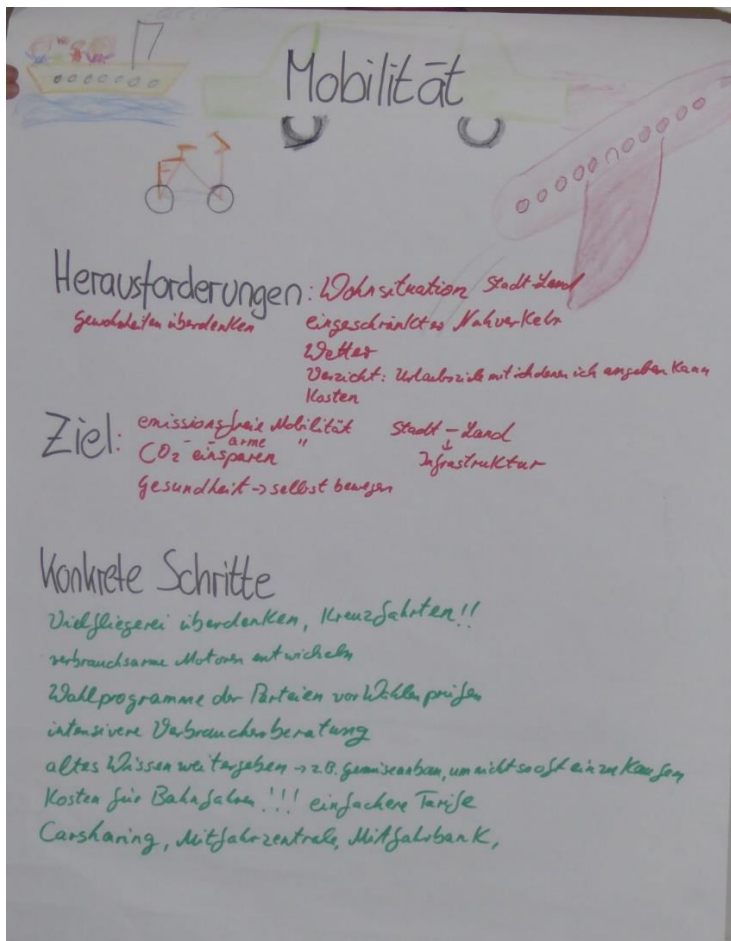 Mobilität
Herausforderungen: Wohnsituation Stadt-Land
Gewohnheiten überdenken eingeschränktes Nahverkehr
Wetter
Verzicht: Urlaubsziele mit denen ich angeben kann
Kosten
Ziel: emissionsfreie Mobilität Stadt – Land
- arme "
CO₂ - einsparen ↓ Infrastruktur
Gesundheit → selbst bewegen
Konkrete Schritte
Vielfliegerei überdenken, Kreuzfahrten!!
verbrauchsarme Motoren entwickeln
Wahlprogramme der Parteien vor Wahlen prüfen
intensivere Verbraucherberatung
altes Wissen weitergeben → z.B. Gemüseanbau, um nicht so oft einzukaufen
Kosten für Bahnfahren!!! einfachere Tarife
Carsharing, Mitfahrzentrale, Mitfahrbank,